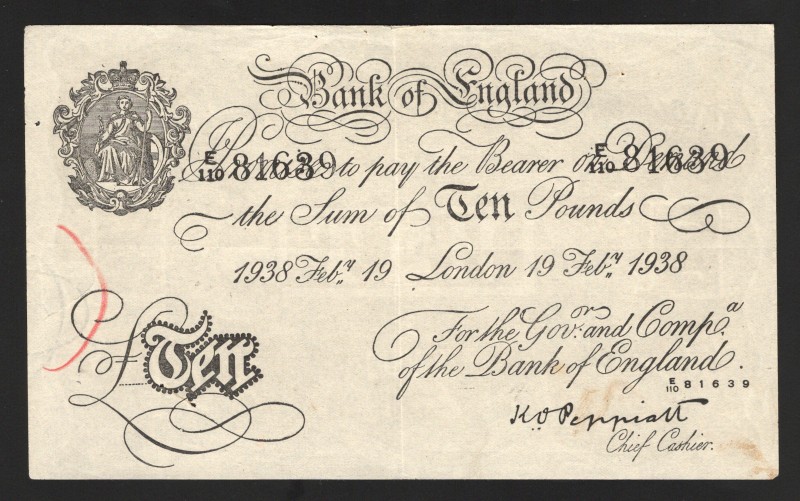 Bank of England
E/110 81639 E/110 81639
Promise to pay the Bearer on Demand
the Sum of Ten Pounds
1938 Feb.y 19 London 19 Feb.y 1938
For the Gov.r and Comp.a
of the Bank of England.
£Ten
E/110 81639
K O Peppiatt
Chief Cashier.